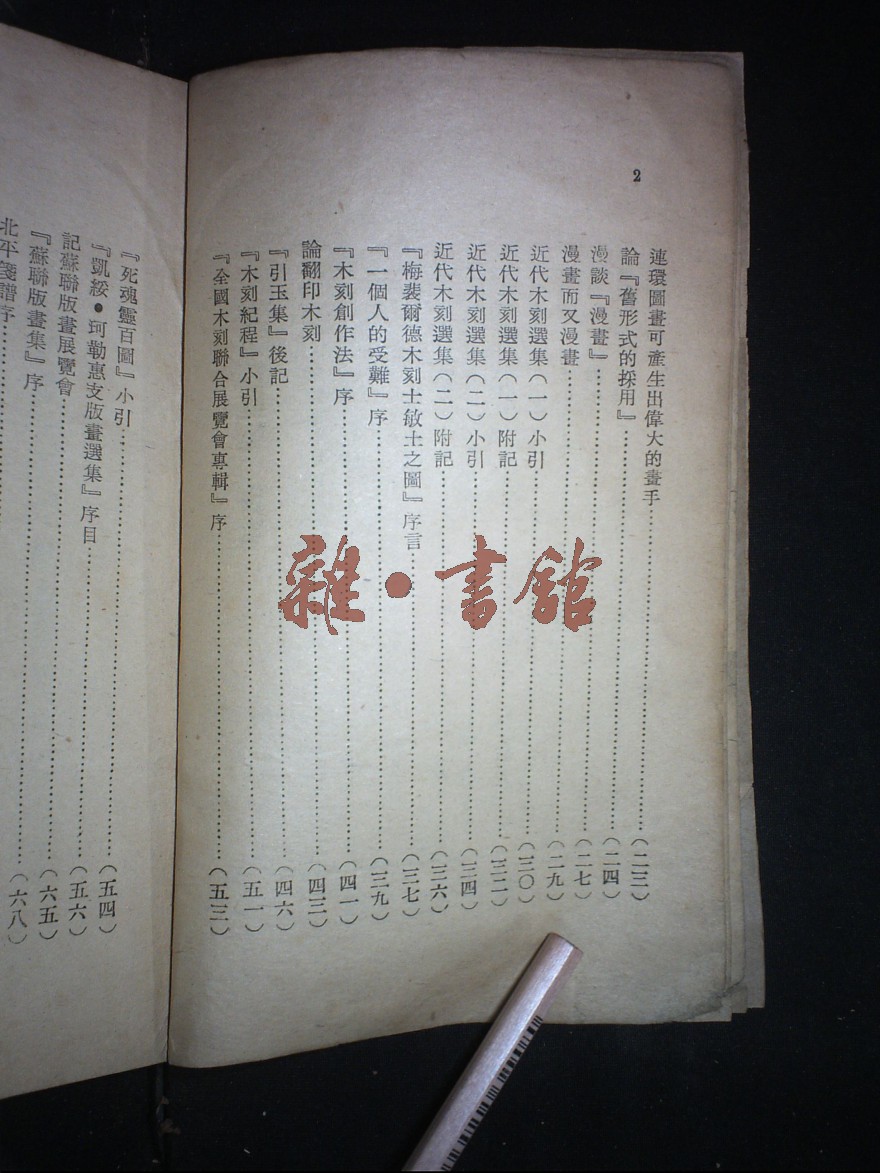 2
連環圖畫可產生出偉大的畫手……(二三)
論『舊形式的採用』……(二四)
漫談『漫畫』……(二七)
漫畫而又漫畫……(二九)
近代木刻選集(一)小引……(三〇)
近代木刻選集(一)附記……(三二)
近代木刻選集(二)小引……(三四)
近代木刻選集(二)附記……(三六)
『梅裴爾德木刻士敏土之圖』序言……(三七)
『一個人的受難』序……(三九)
『木刻創作法』序……(四一)
論翻印木刻……(四三)
『引玉集』後記……(四六)
『木刻紀程』小引……(五一)
『全國木刻聯合展覽會專輯』序……(五三)
『死魂靈百圖』小引……(五四)
『凱綏●珂勒惠支版畫選集』序目……(五六)
記蘇聯版畫展覽會……(六五)
『蘇聯版畫集』序……(六八)
北平箋譜序……
雜●書館